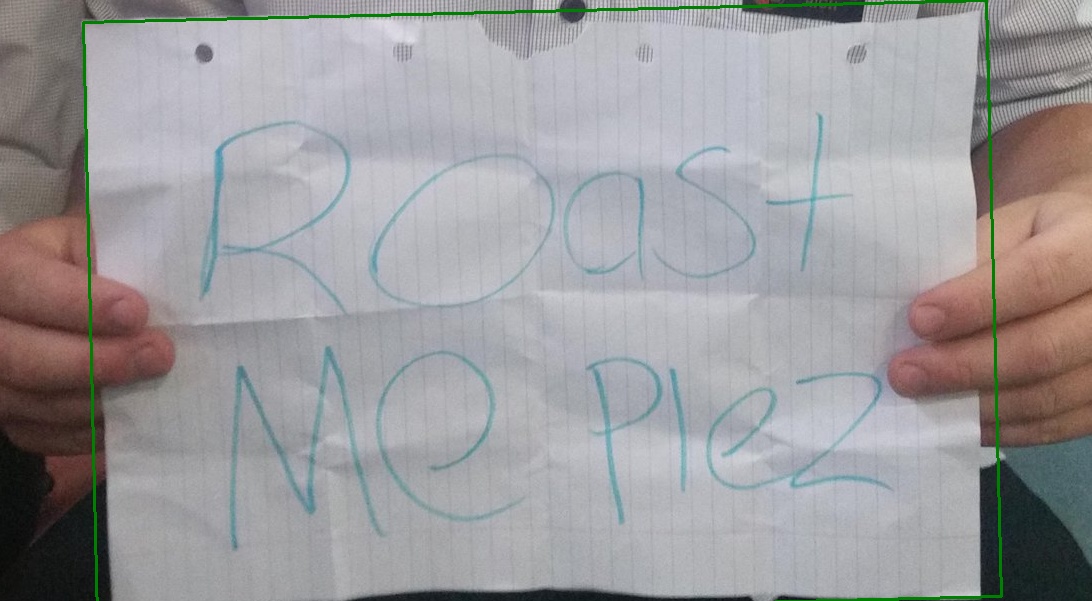 ROast
Me Plez